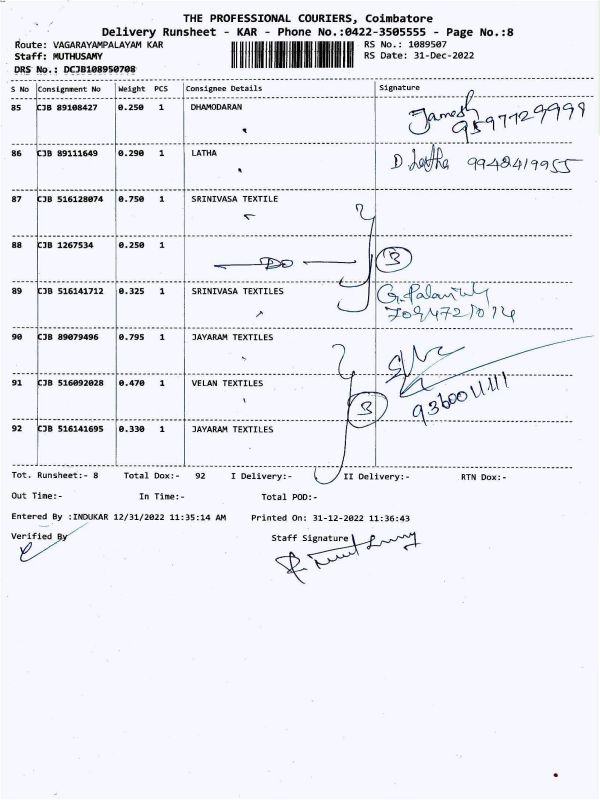 THE PROFESSIONAL COURIERS, Coimbatore
Delivery Runsheet - KAR - Phone No.:0422-3505555 - Page No.:8
Route: VAGARAYAMPALAYAM KAR RS No.: 1089507
Staff: MUTHUSAMY RS Date: 31-Dec-2022
DRS No.: DCJB108950708
S No Consignment No Weight PCS Consignee Details Signature
85 CJB 89108427 0.250 1 DHAMODARAN Jamesh
9597729999
86 CJB 89111649 0.290 1 LATHA D. Latha 9942419955
87 CJB 516128074 0.750 1 SRINIVASA TEXTILE
88 CJB 1267534 0.250 1
DO 3
89 CJB 516141712 0.325 1 SRINIVASA TEXTILES
90 CJB 89079496 0.795 1 JAYARAM TEXTILES
91 CJB 516092028 0.470 1 VELAN TEXTILES
3 9360011111
92 CJB 516141695 0.330 1 JAYARAM TEXTILES
Tot. Runsheet:- 8 Total Dox:- 92 I Delivery:- II Delivery:- RTN Dox:-
Out Time:- In Time:- Total POD:-
Entered By :INDUKAR 12/31/2022 11:35:14 AM Printed On: 31-12-2022 11:36:43
Verified By Staff Signature